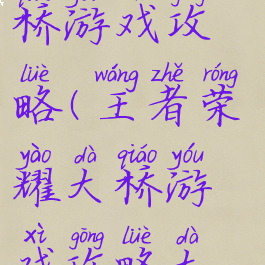 桥游戏攻
lüè wáng zhě róng
略(王者荣
yào dà qiáo yóu
耀大桥游
xì gōng lüè dà
戏攻略大